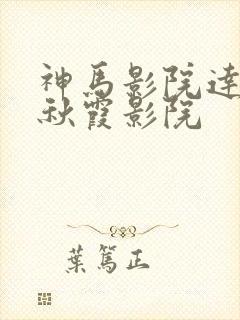 神馬影院達
秋霞影院
葉篤正